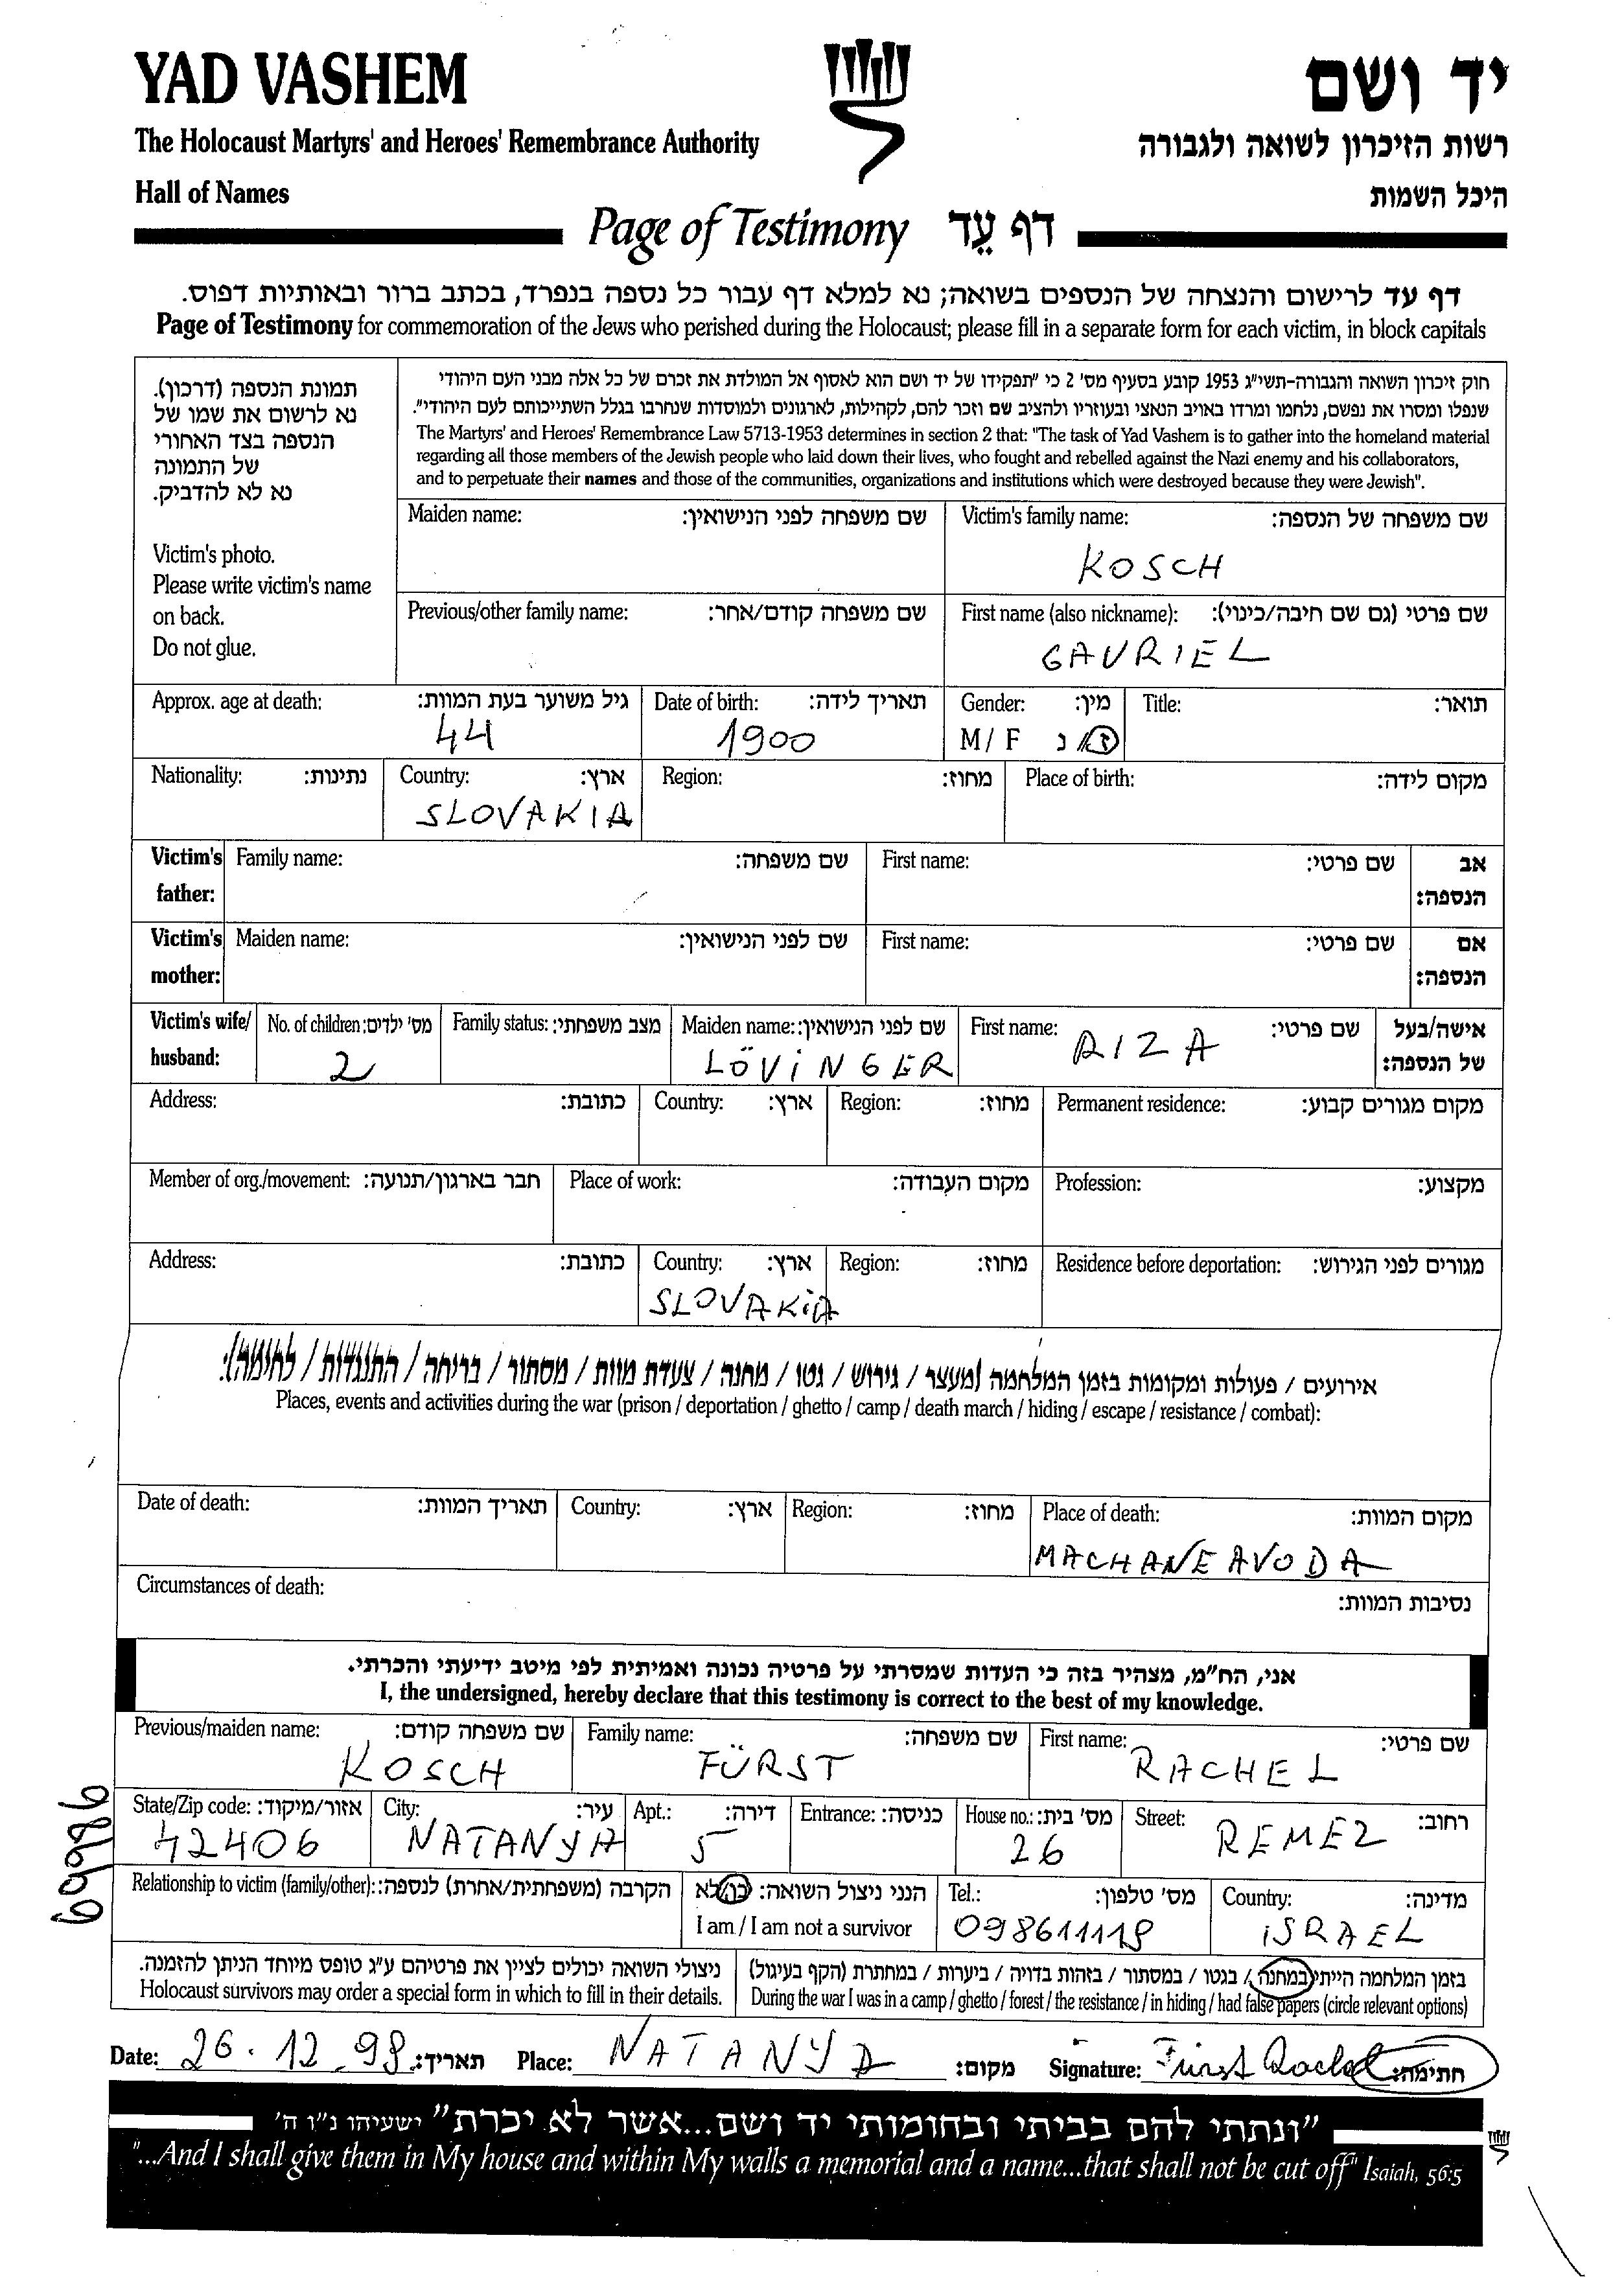 YAD VASHEM
יד ושם
The Holocaust Martyrs' and Heroes' Remembrance Authority
רשות הזיכרון לשואה ולגבורה
Hall of Names
היכל השמות
Page of Testimony דף עֵד
דף עד לרישום והנצחה של הנספים בשואה; נא למלא דף עבור כל נספה בנפרד, בכתב ברור ובאותיות דפוס.
Page of Testimony for commemoration of the Jews who perished during the Holocaust; please fill in a separate form for each victim, in block capitals
תמונת הנספה (דרכון).
נא לרשום את שמו של
הנספה בצד האחורי
של התמונה
נא לא להדביק.
Victim's photo.
Please write victim's name
on back.
Do not glue.
חוק זיכרון השואה והגבורה–תשי"ג 1953 קובע בסעיף מס' 2 כי "תפקידו של יד ושם הוא לאסוף אל המולדת את זכרם של כל אלה מבני העם היהודי
שנפלו ומסרו את נפשם, נלחמו ומרדו באויב הנאצי ובעוזריו ולהציב שם וזכר להם, לקהילות, לארגונים ולמוסדות שנחרבו בגלל השתייכותם לעם היהודי".
The Martyrs' and Heroes' Remembrance Law 5713-1953 determines in section 2 that: "The task of Yad Vashem is to gather into the homeland material
regarding all those members of the Jewish people who laid down their lives, who fought and rebelled against the Nazi enemy and his collaborators,
and to perpetuate their names and those of the communities, organizations and institutions which were destroyed because they were Jewish".
Maiden name: שם משפחה לפני הנישואין: Victim's family name: שם משפחה של הנספה:
KOSCH
Previous/other family name: שם משפחה קודם/אחר: First name (also nickname): שם פרטי (גם שם חיבה/כינוי):
GAVRIEL
Approx. age at death: גיל משוער בעת המוות: Date of birth: תאריך לידה: Gender: מין: Title: תואר:
44 1900 M / F ז / נ
Nationality: נתינות: Country: ארץ: Region: מחוז: Place of birth: מקום לידה:
SLOVAKIA
Victim's father: Family name: שם משפחה: First name: שם פרטי: אב הנספה:
Victim's mother: Maiden name: שם לפני הנישואין: First name: שם פרטי: אם הנספה:
Victim's wife/ husband: No. of children: מס' ילדים: Family status: מצב משפחתי: Maiden name: שם לפני הנישואין: First name: שם פרטי: אישה/בעל של הנספה:
2 LÖVINGER RIZA
Address: כתובת: Country: ארץ: Region: מחוז: Permanent residence: מקום מגורים קבוע:
Member of org./movement: חבר בארגון/תנועה: Place of work: מקום העבודה: Profession: מקצוע:
Address: כתובת: Country: ארץ: Region: מחוז: Residence before deportation: מגורים לפני הגירוש:
SLOVAKIA
אירועים / פעולות ומקומות בזמן המלחמה (מעצר / גירוש / גטו / מחנה / צעדת מוות / מסתור / בריחה / התנגדות / לחימה):
Places, events and activities during the war (prison / deportation / ghetto / camp / death march / hiding / escape / resistance / combat):
Date of death: תאריך המוות: Country: ארץ: Region: מחוז: Place of death: מקום המוות:
MACHANE AVODA
Circumstances of death: נסיבות המוות:
אני, הח"מ, מצהיר בזה כי העדות שמסרתי על פרטיה נכונה ואמיתית לפי מיטב ידיעתי והכרתי.
I, the undersigned, hereby declare that this testimony is correct to the best of my knowledge.
Previous/maiden name: שם משפחה קודם: Family name: שם משפחה: First name: שם פרטי:
KOSCH FÜRST RACHEL
State/Zip code: אזור/מיקוד: City: עיר: Apt.: דירה: Entrance: כניסה: House no.: מס' בית: Street: רחוב:
42406 NATANYA 5 26 REMEZ
Relationship to victim (family/other): הקרבה (משפחתית/אחרת) לנספה: הנני ניצול השואה: כן/לא Tel.: מס' טלפון: Country: מדינה:
I am / I am not a survivor 098611118 ISRAEL
ניצולי השואה יכולים לציין את פרטיהם ע"ג טופס מיוחד הניתן להזמנה.
Holocaust survivors may order a special form in which to fill in their details.
בזמן המלחמה הייתי במחנה / בגטו / במסתור / בזהות בדויה / ביערות / במחתרת (הקף בעיגול)
During the war I was in a camp / ghetto / forest / the resistance / in hiding / had false papers (circle relevant options)
Date: 26.12.98 תאריך: Place: NATANYA מקום: Signature: Fürst Rachel חתימה:
"ונתתי להם בביתי ובחומותי יד ושם...אשר לא יכרת" ישעיהו נ"ו ה'
"...And I shall give them in My house and within My walls a memorial and a name...that shall not be cut off" Isaiah, 56:5